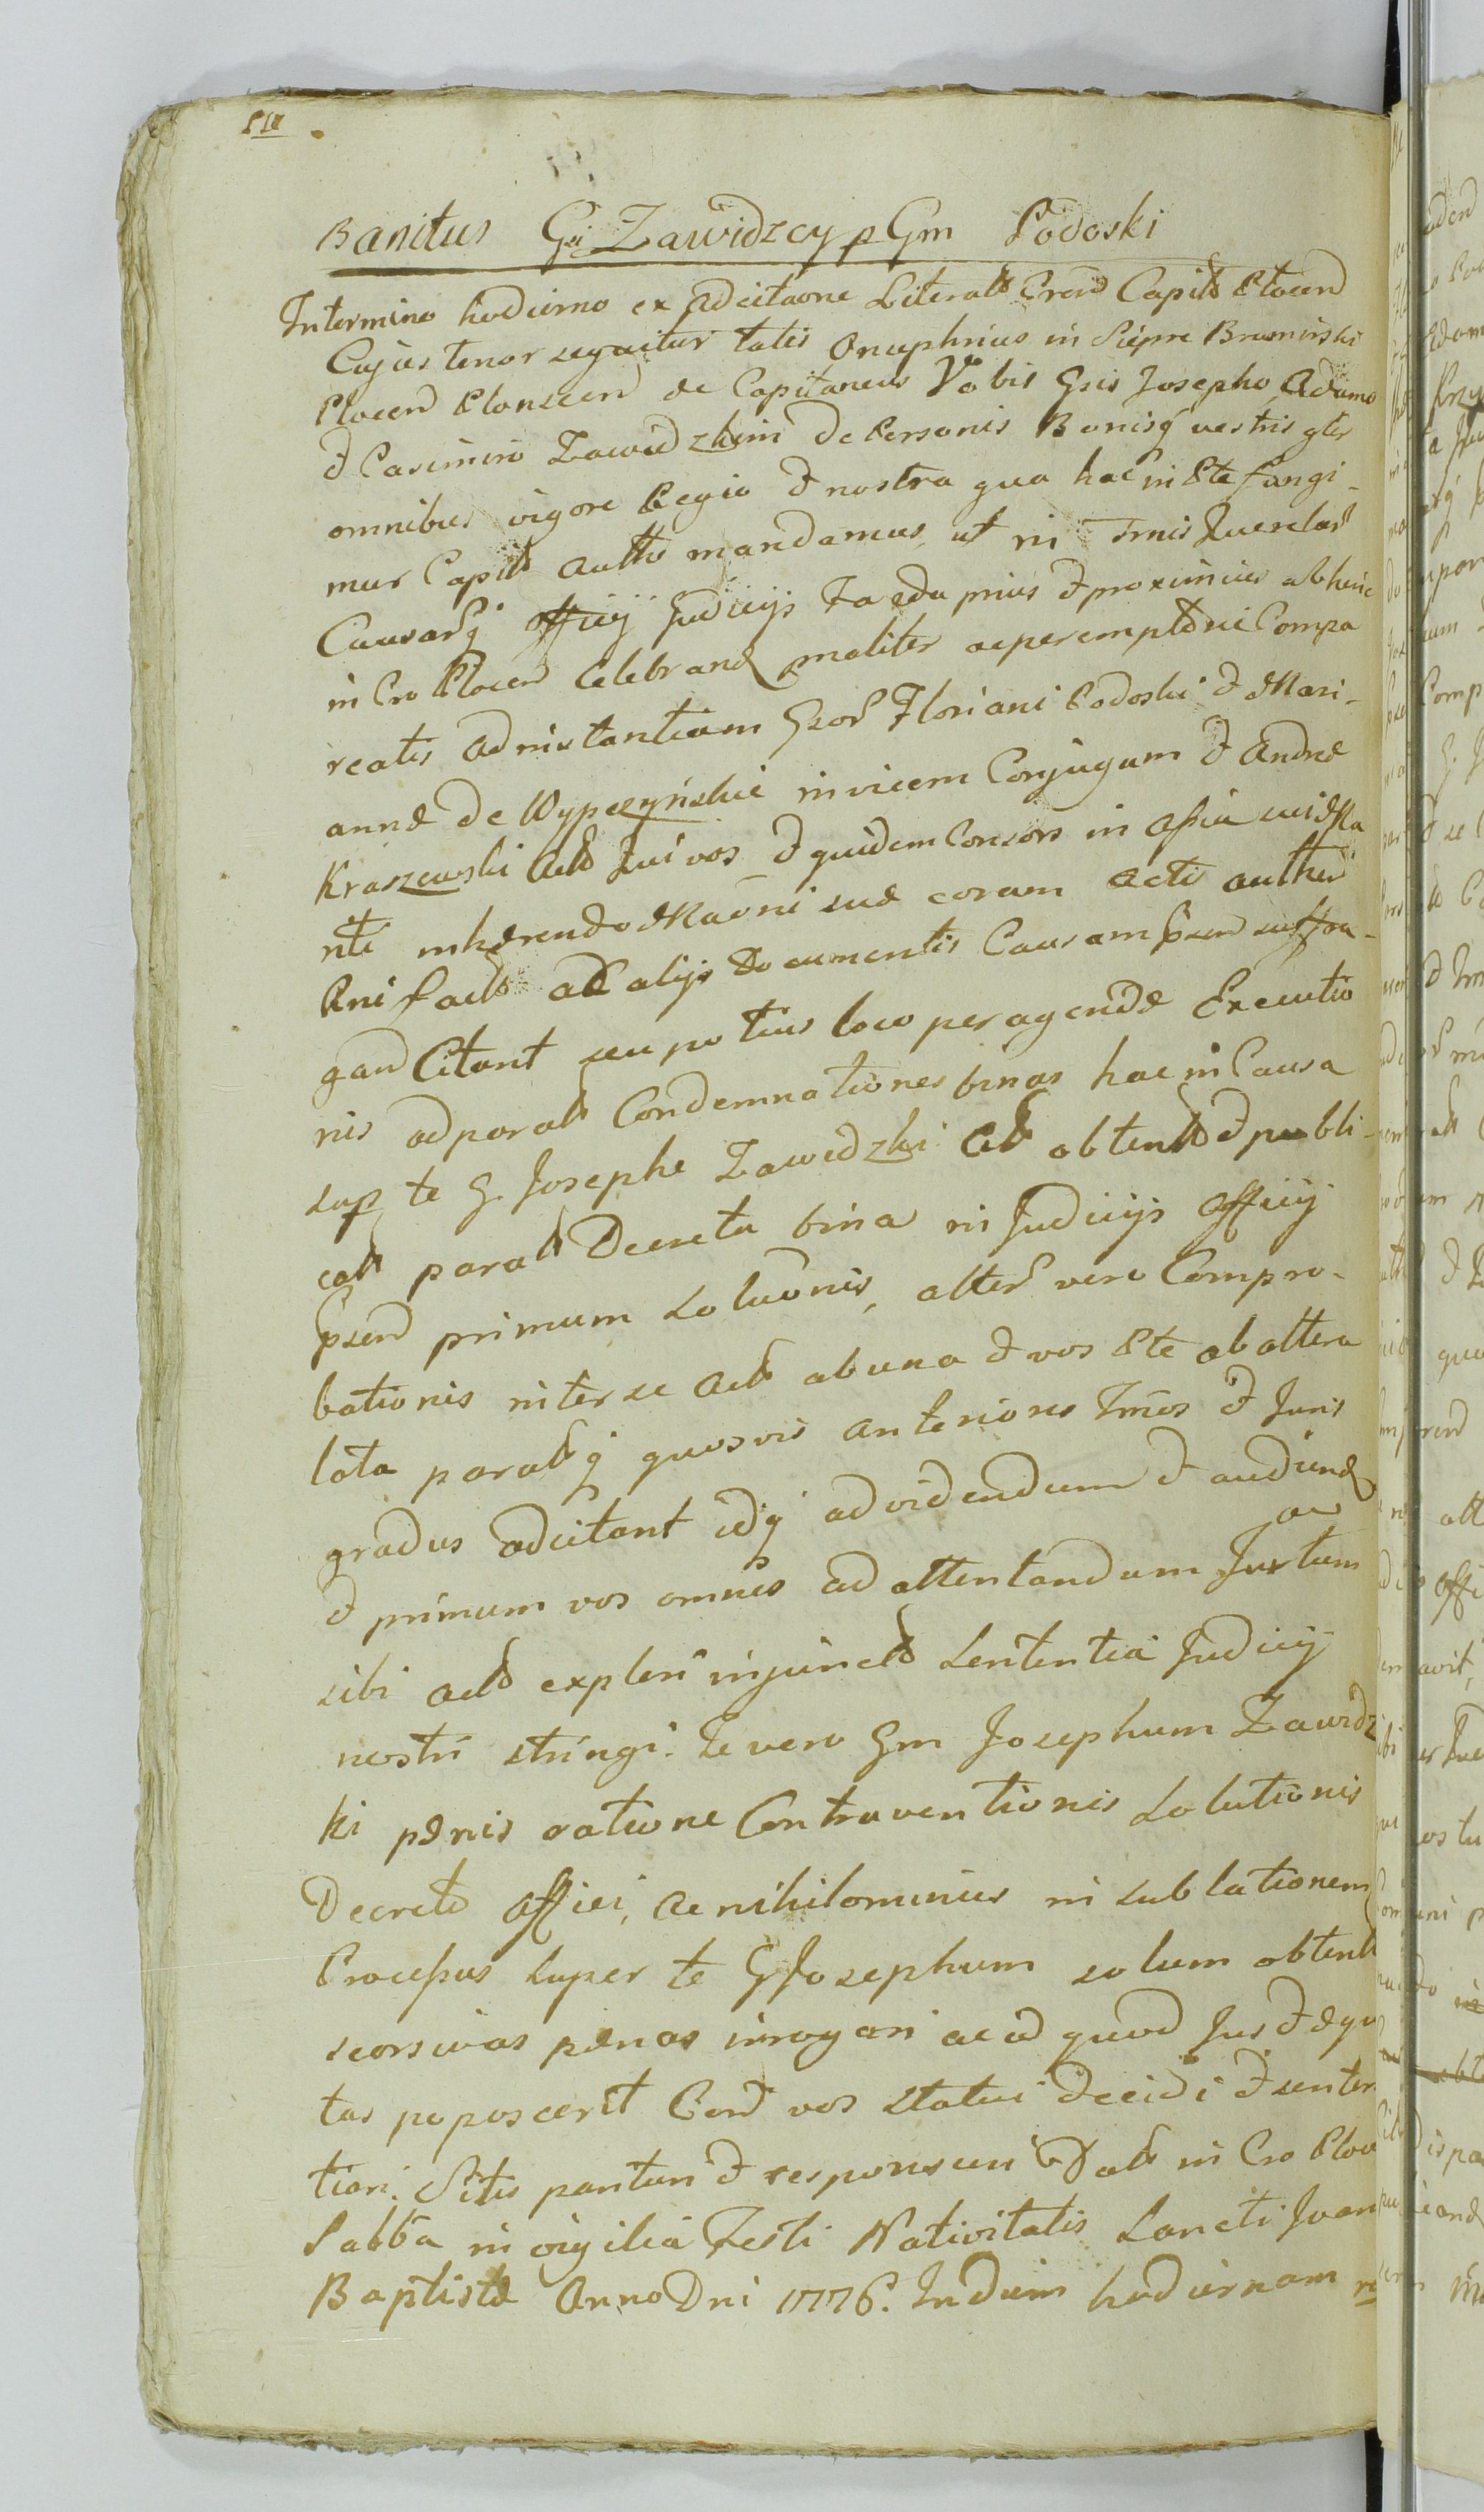 Banitus Gi Zawidzcy p Gm Podoski
In termino hodierno ex adcitaone Literali Crend Capitli Plocen
Cujus tenor sequitur talis Onuphrius in Sierpre Bromirski
Plocen Plonscen &c Capitaneus Vobis Gsis Josepho, Adamo
& Casimiro Zawidzkim de Personis Bonisq vestris gter
omnibus vigore Regia & nostra qua hac in Pte fungi-
mur Capitli autthe mandamus, ut in Tmis Querelar
Causarq officij Judicijs Faeda prius & proximius abhinc
in Cro Plocen Celebrand pnaliter ac peremptorie Compa
reatis ad instantiam Gsor Floriani Podoski & Mari-
annæ de Wypczyńskie invicem Conjugum & Andræ
Kraszewski Act Qui vos & quidem Consors in assia sui Ma
riti inhærendo Maoni suæ coram Actis authen
Pni fact ac alijs Documentis Causam psen suffra-
gan Citant seu potius loco peragendæ Executio
nis ad parat Condemnationes binas hac in Causa
sup te G. Josephe Zawidzki Act obtent & publi-
cat parat Decreta bina in Judicijs Officij
psen primum Soluonis, alter vero Compro-
bationis inter se Act ab una & vos Pte ab altera
lata paratq quosvis anteriores Tmos & Juris
gradus adcitant idq ad videndum & audiend
& primum vos omnes ad attentandum Jurtum
au
sibi act expleri injunct Sententia Judicij
nostri stringi. Te vero Gm Josephum Zawidz
ki pænis ratione Contraventionis Solutionis
Decreto affici, ac nihilominus in sublationem
Processus super te G Josephum solum obtent
seorsivas pænas irrogari ac id quod Jus & æqu
tas poposcerit Cond vos statui decidi & senten
tiari. Sitis parituri & responsuri Dat in Cro Ploc
Sabba in vigilia Festi Nativitatis Sancti Joan
Baptistæ Anno Dni 1776. In diem hodiernam